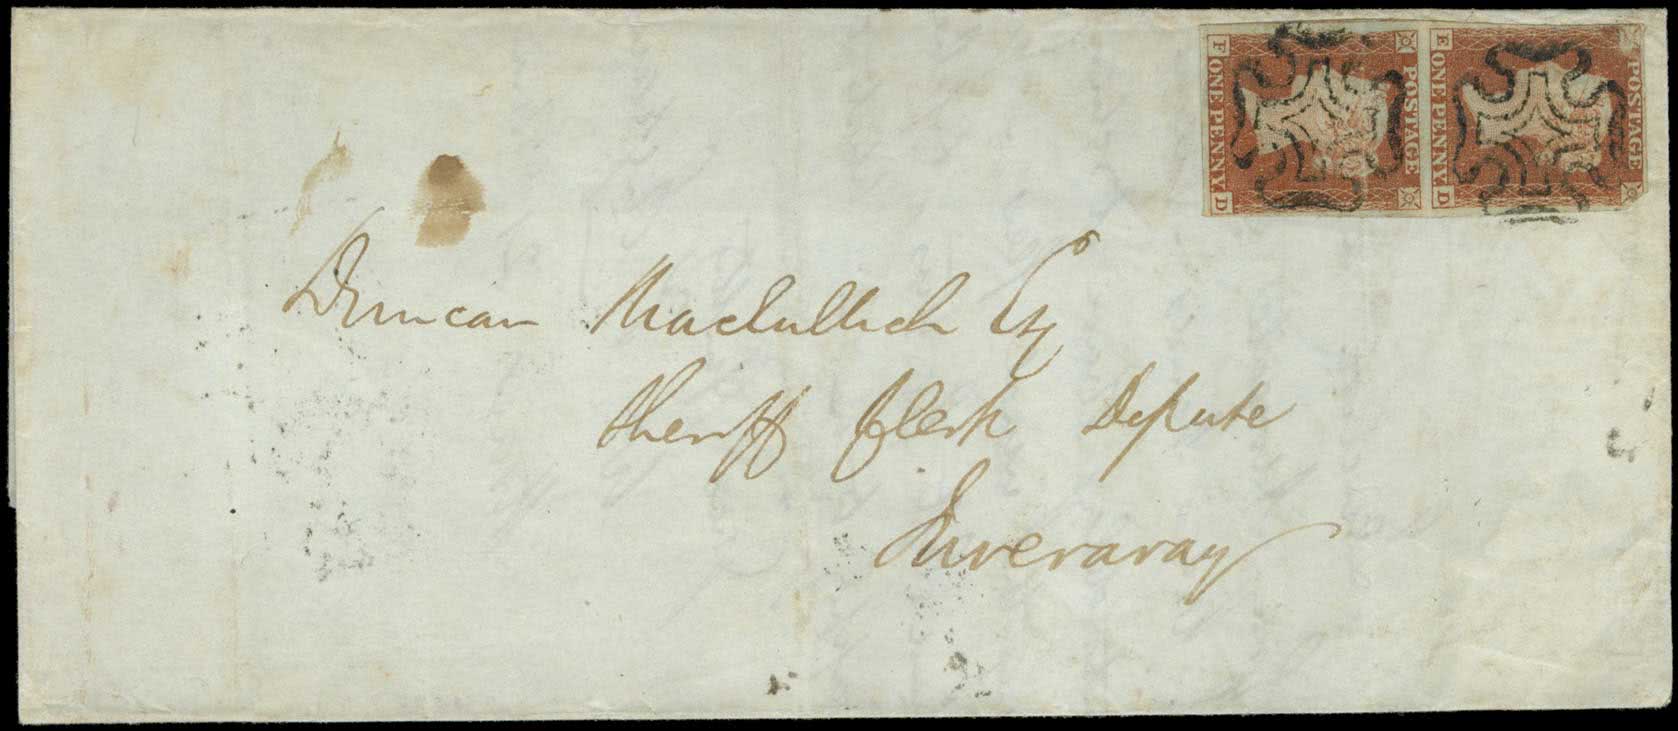 POSTAGE
F ONE PENNY D
POSTAGE
E ONE PENNY D
Duncan MacCullich Esq
Sheriff Clerk Depute
Inveraray